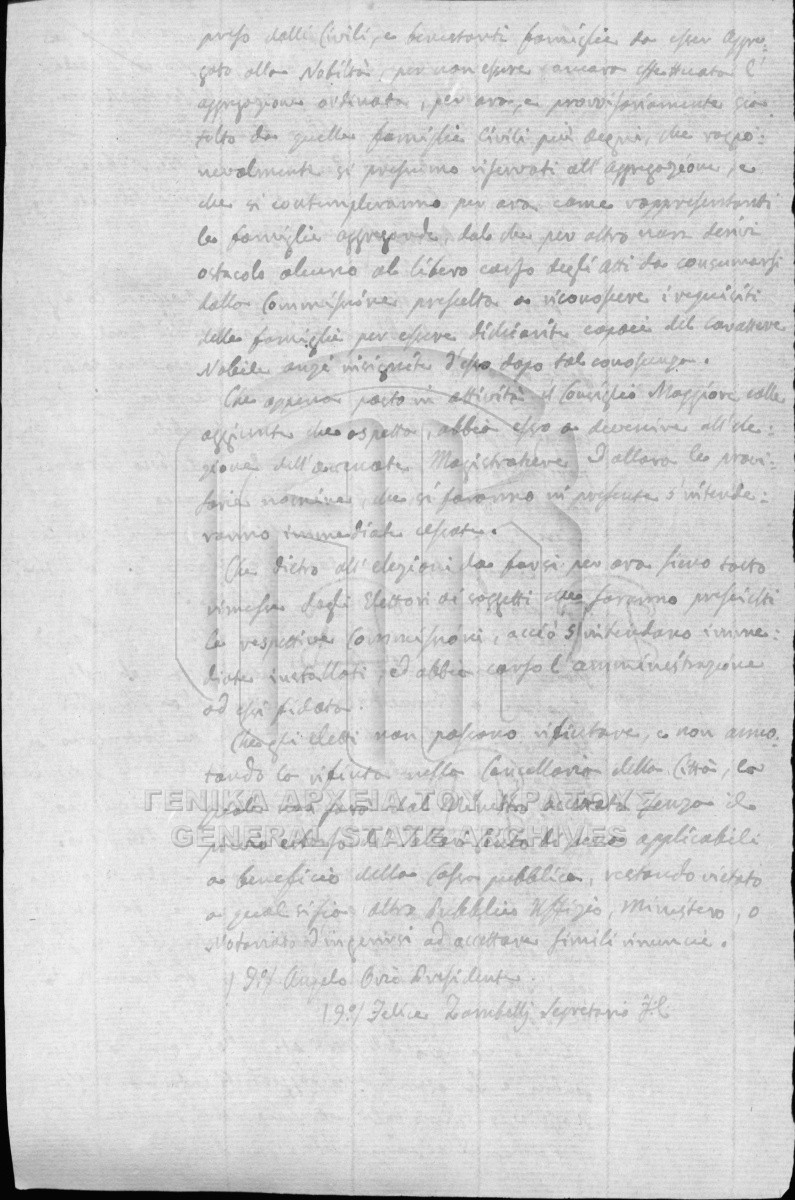 preso dalli Civili, e benestanti famiglie da esser Aggre:
gate alla Nobiltà, per non essere ancora effettuata l'
aggregazione ordinata, per ora, e provvisoriamente sia
tolto da quelle famiglie Civili più degne, che ragio:
nevolmente si presumono riservati all'Aggregazione, e
che si contempleranno per ora come rappresentanti
le famiglie aggregande, dal che per altro non derivi
ostacolo alcuno al libero corso degli Atti da consumarsi
dalla Commissione prescelta a riconoscere i requisiti
delle famiglie per essere dichiarite capaci del Carattere
Nobile, anzi insignite d'esso dopo tal conoscenza.
Che appena posto in attività il Consiglio Maggiore colle
aggiunte che aspetta, abbia esso a devenire all'ele:
zione dell'accennate Magistrature, d'allora le provi:
sorie nomine, che si faranno in presente s'intende:
ranno immediate cessate.
Che dietro all'elezioni da farsi per ora sieno tosto
rimesse dagli Elettori ai soggetti che saranno prescielti
le respettive Commissioni, acciò s'intendano imme:
diate installati, ed abbia corso l'amministrazione
ad essi fidata.
Che gli eletti non possano rifiutare, e non anno:
tando la rifiuta nella Cancellaria della Città, la
quale non sarà dal Ministro accettata senza il
pena applicabili
a beneficio della Cassa pubblica, restando vietato
a qual sisia altro Pubblico Uffizio, Ministero, o
Notariato d'ingerirsi ad accettare simili rinuncie.
Angelo Orio Presidente.
Felice Zambelli Segretario
ΓΕΝΙΚΑ ΑΡΧΕΙΑ ΤΟΥ ΚΡΑΤΟΥΣ
GENERAL STATE ARCHIVES